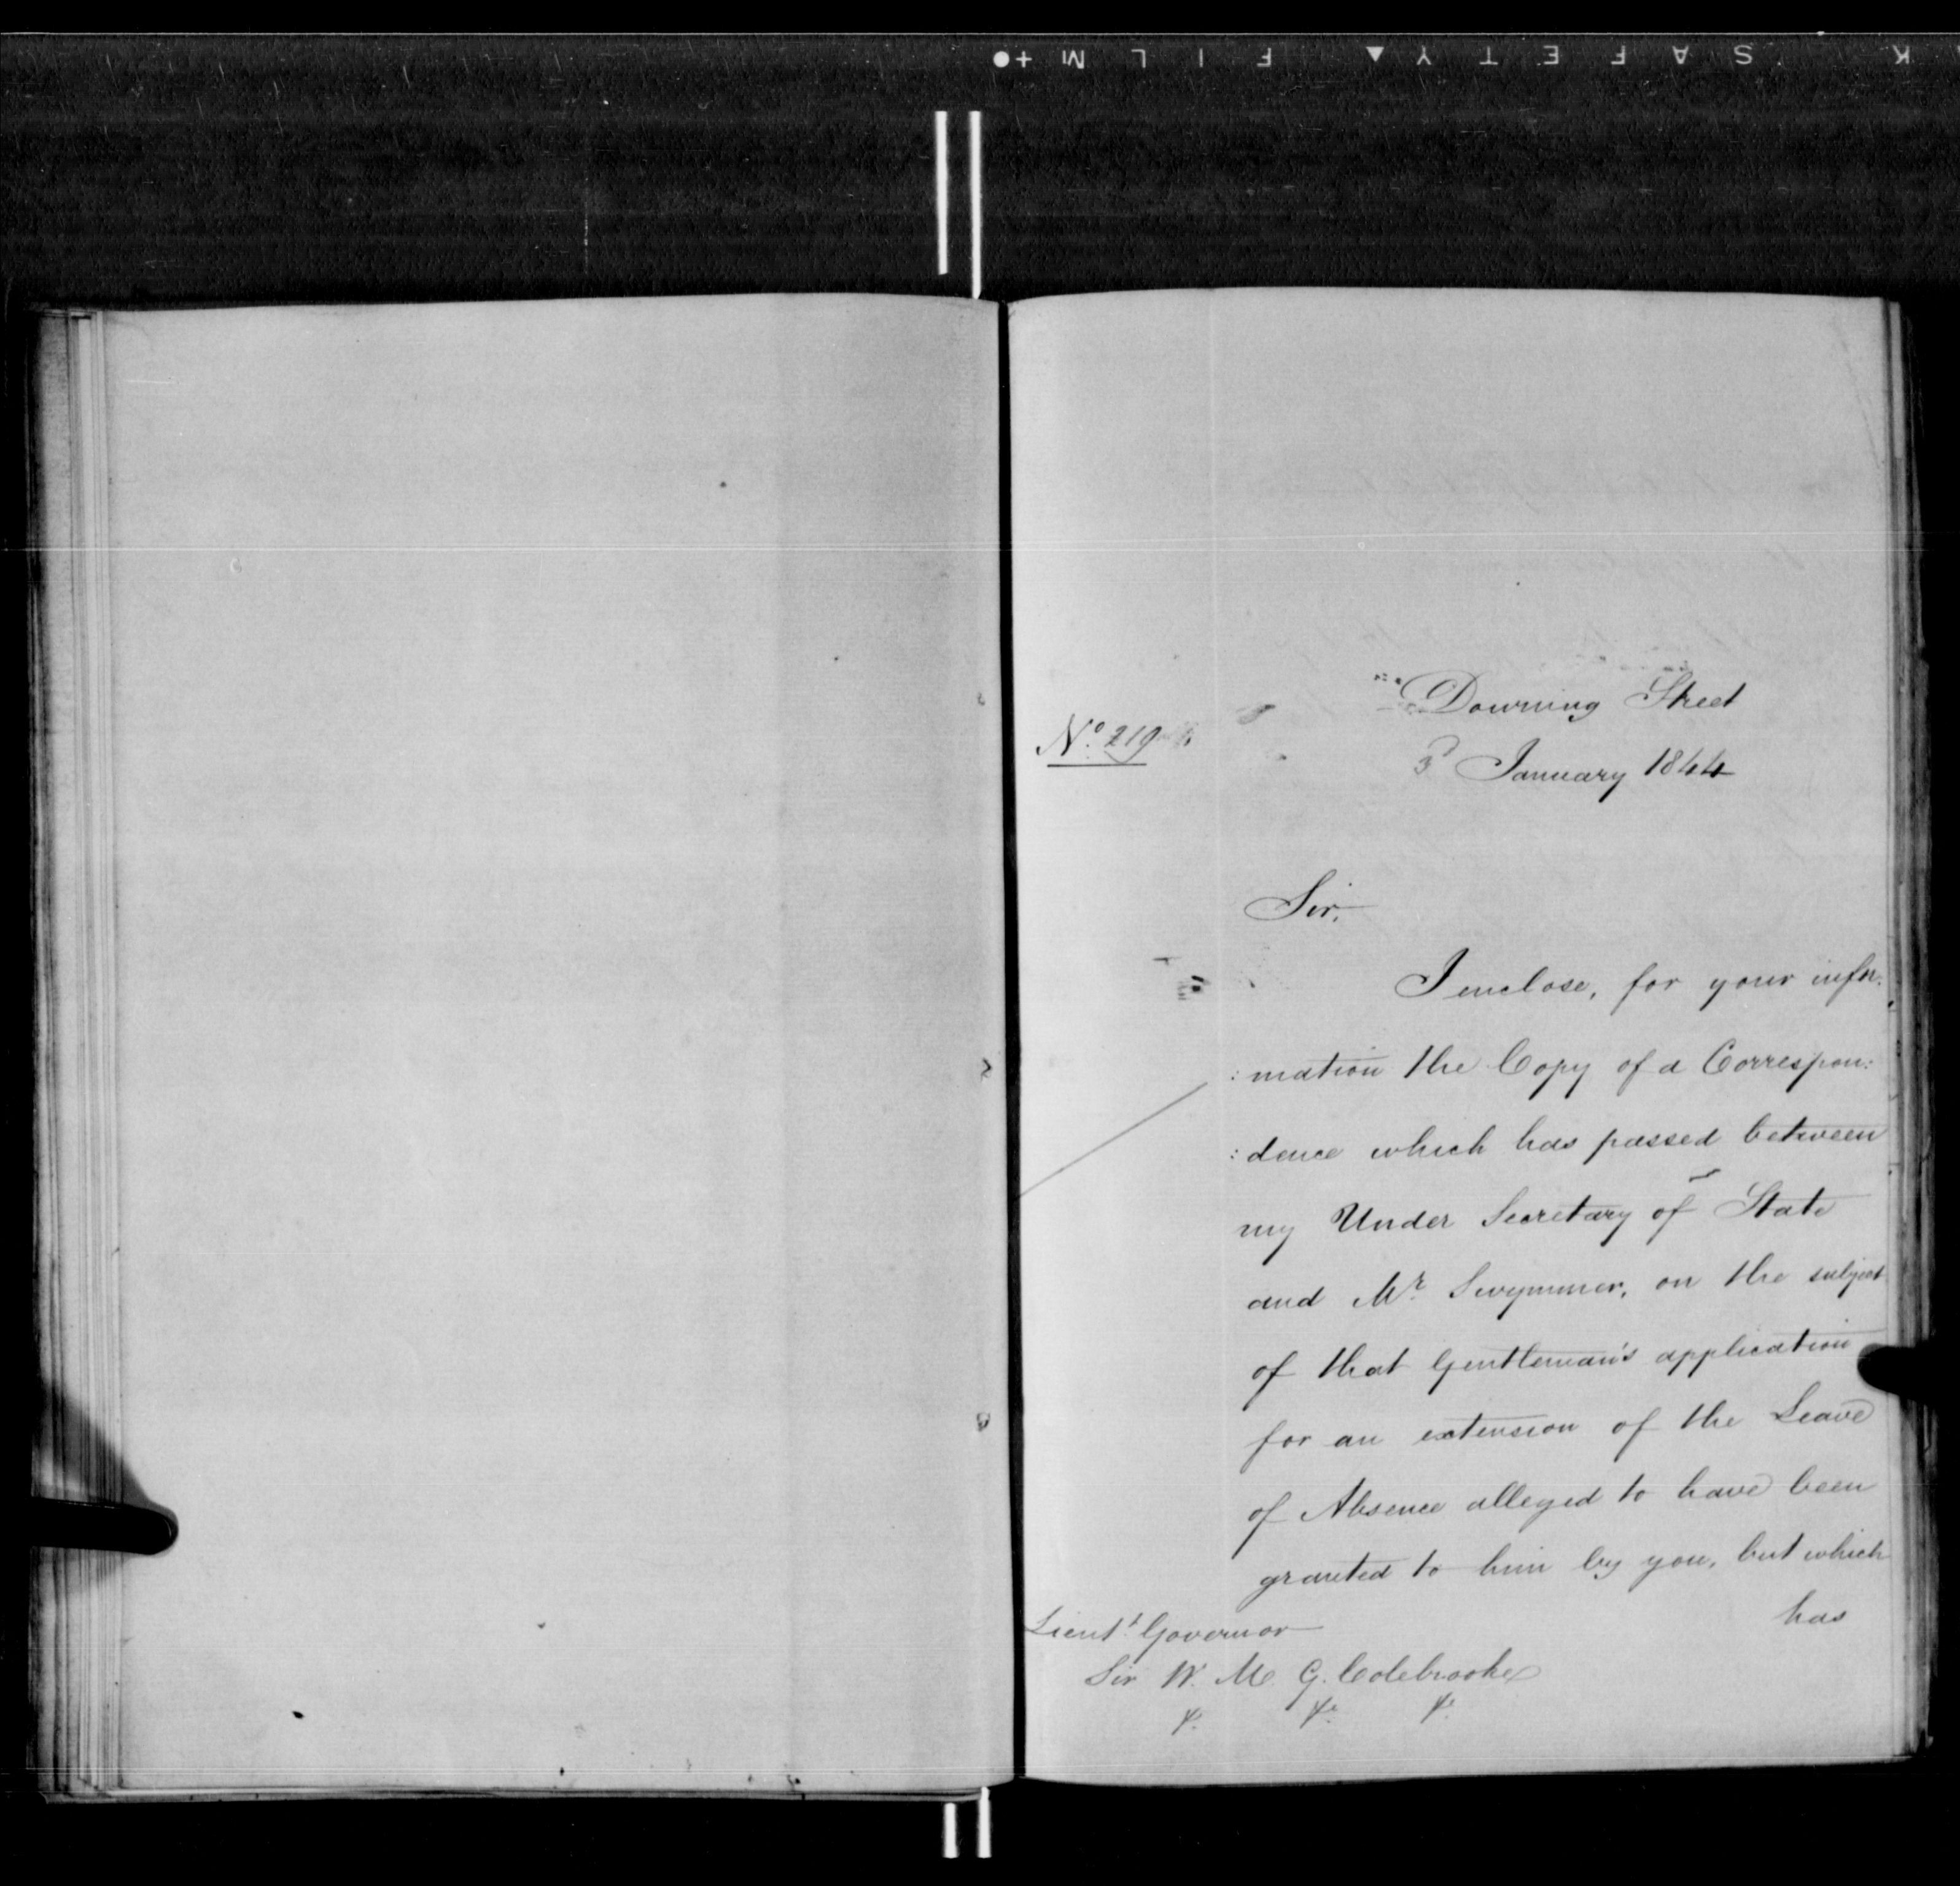 K SAFETY▲ FILM +●
Nº. 219
Downing Street
3 January 1844
Sir,
I enclose, for your infor:
:mation the Copy of a Correspon:
:dence which has passed between
my Under Secretary of State
and Mr. Swymmer, on the subject
of that Gentleman's application
for an extension of the Leave
of Absence alleged to have been
granted to him by you, but which
has
Lieut.t Governor
Sir W. M. G. Colebrooke
&c. &c. &c.